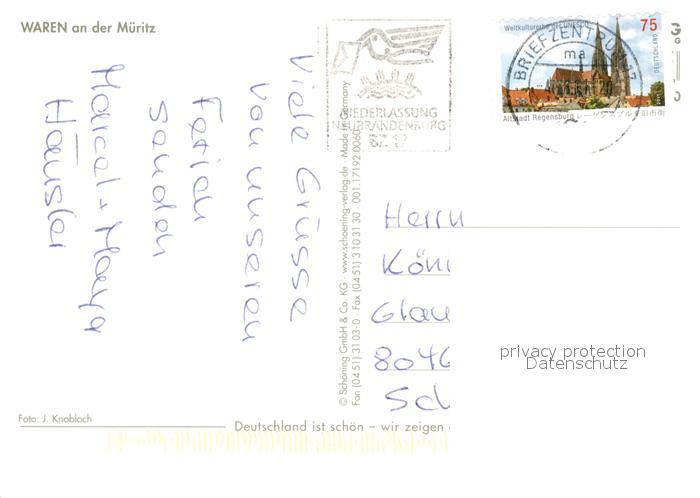 WAREN an der Müritz
Viele Grüsse
von unseren
Ferien
senden
Marcel + Maya
Häusler
NIEDERLASSUNG
NEUBRANDENBURG
BZ 17
Weltkulturerbe der UNESCO
75
DEUTSCHLAND
BRIEFZENTRUM 17
ma
Altstadt Regensburg
© Schöning GmbH & Co. KG · www.schoening-verlag.de · Made in Germany
Fon (04 51) 31 03-0 · Fax (04 51) 310 31 30 · 001.17192.0060
Herrn
Köni
Glau
8046
Sch
privacy protection
Datenschutz
Foto: J. Knobloch
Deutschland ist schön – wir zeigen